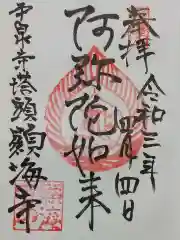 奉拝 令和三年
四月四日
阿弥陀如来
平泉寺塔頭 顕海寺